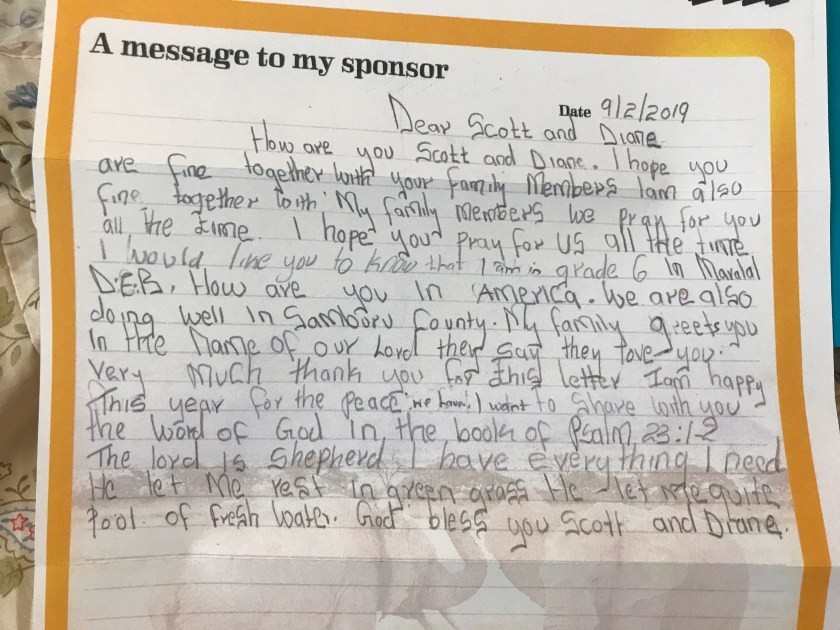 A message to my sponsor
Date 9/2/2019
Dear Scott and Diane
How are you Scott and Diane. I hope you
are fine together with your family Members Iam also
fine together with My family Members we pray for you
all the time. I hope you pray for us all the time
I would like you to know that I am in grade 6 in Maralal
D.E.B, How are you In America. We are also
doing well In Samburu County. My family greets you
In the Name of our Lord they say they love you.
Very Much thank you for this letter Iam happy
This year for the peace we have, I want to share with you
the word of God In the book of Psalm 23:1-2
The lord is Shepherd I have everything I need
He let Me rest in green grass He let me quite
Pool of fresh water. God bless you Scott and Diane.